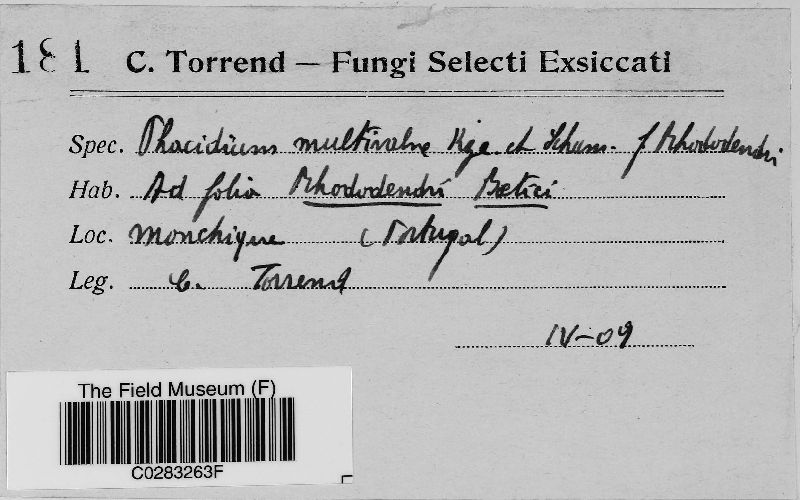 181 C. Torrend — Fungi Selecti Exsiccati
Spec. Phacidium multivalve Kze et Schum. f Rhododendri
Hab. Ad folia Rhododendri Bætici
Loc. Monchique (Portugal)
Leg. C. Torrend
IV-09
The Field Museum (F)
C0283263F